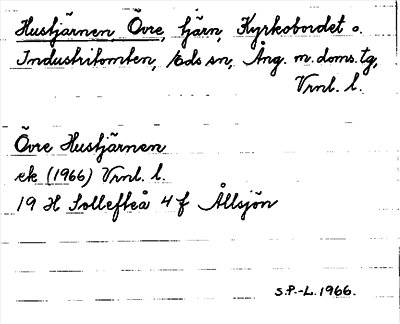 Hustjärnen, Övre, tjärn, Kyrkobordet o.
Industritomten, Eds sn, Ång. m. doms. tg,
Vrnl. l.
Övre Hustjärnen
ek (1966) Vrnl. l.
19 H Sollefteå 4 f Ållsjön
S.P.-L. 1966.